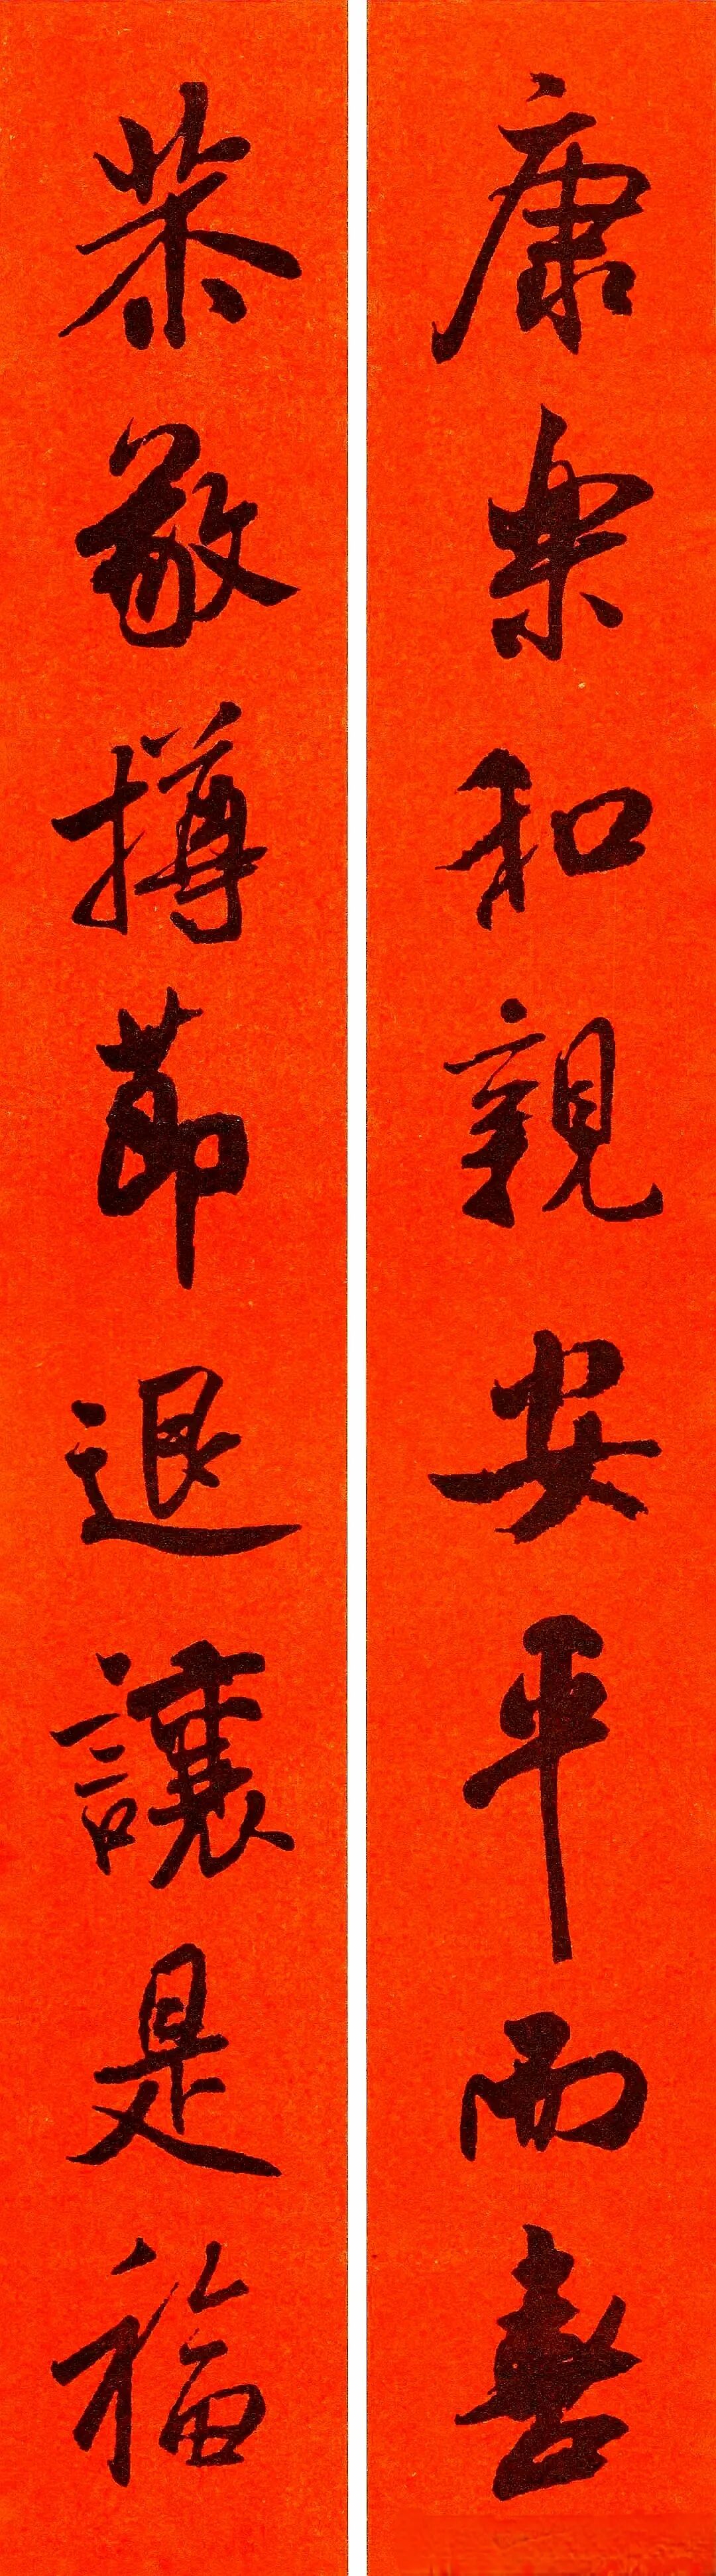 康樂和親安平而喜
恭敬撙節退讓是福